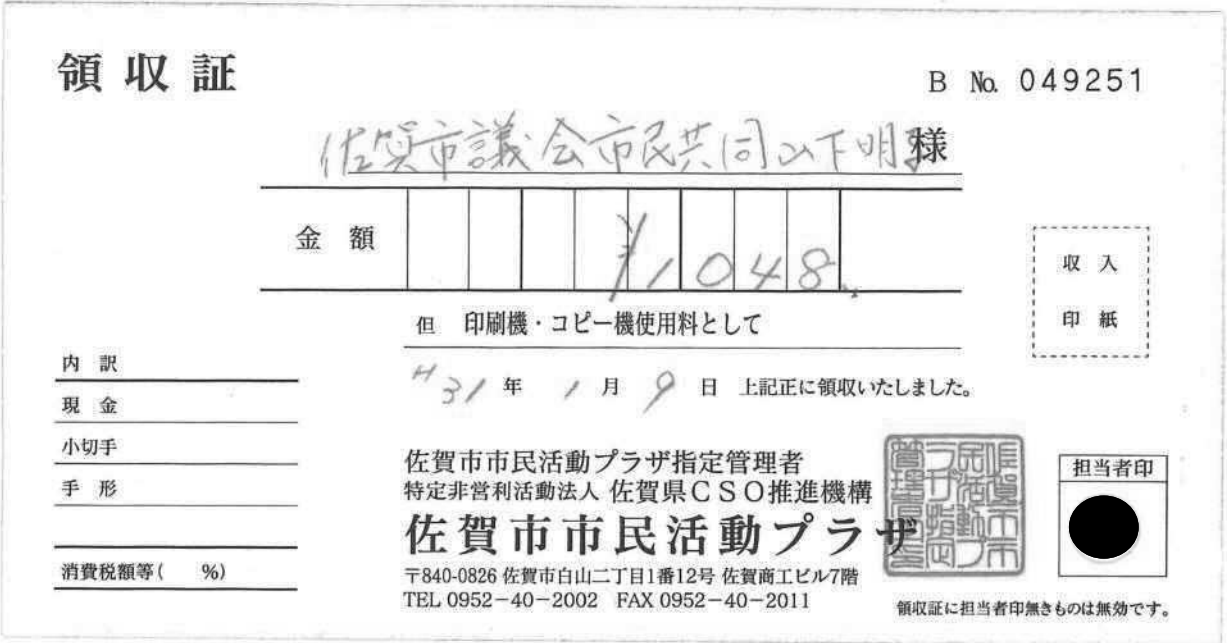 領収証
B No. 049251
佐賀市議会市民共同山下明子様
金額 ¥1048
収入
印紙
但 印刷機・コピー機使用料として
内訳
H31年1月9日 上記正に領収いたしました。
現金
小切手
手形
消費税額等( %)
佐賀市市民活動プラザ指定管理者
特定非営利活動法人 佐賀県CSO推進機構
佐賀市市民活動プラザ
〒840-0826 佐賀市白山二丁目1番12号 佐賀商工ビル7階
TEL 0952-40-2002 FAX 0952-40-2011
担当者印
領収証に担当者印無きものは無効です。